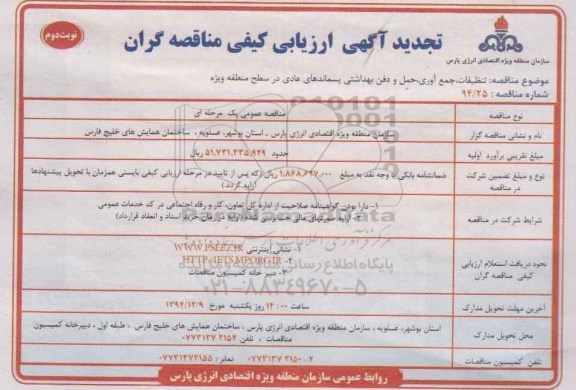 نوبت دوم
تجدید آگهی ارزیابی کیفی مناقصه گران
سازمان منطقه ویژه اقتصادی انرژی پارس
موضوع مناقصه: تنظیفات،جمع آوری،حمل و دفن بهداشتی پسماندهای عادی در سطح منطقه ویژه
شماره مناقصه : ۹۴/۲۵
نوع مناقصه
مناقصه عمومی یک مرحله ای
نام و نشانی مناقصه گزار
سازمان منطقه ویژه اقتصادی انرژی پارس ـ استان بوشهر، عسلویه ، ساختمان همایش های خلیج فارس
مبلغ تقریبی برآورد اولیه
حدود ۵۱,۷۳۱,۲۳۵,۹۲۹ ریال
نوع و مبلغ تضمین شرکت در مناقصه
ضمانتنامه بانکی یا وجه نقد به مبلغ ۱,۸۶۸,۶۲۷,۰۰۰ ریال (که پس از تایید در مرحله ارزیابی کیفی بایستی همزمان با تحویل پیشنهادها
ارایه گردد)
شرایط شرکت در مناقصه
۱- دارا بودن گواهینامه صلاحیت از اداره کل تعاون، کار و رفاه اجتماعی در کد خدمات عمومی
نحوه دریافت استعلام ارزیابی کیفی مناقصه گران
۱- نشانی اینترنتی WWW.PSEEZ.IR
۲- HTTP://IETS.MPORG.IR
۳- دبیر خانه کمیسیون مناقصات
پایگاه اطلاع رسانی
۰۲۱-۸۸۳۴۹۶۷۰-۵
آخرین مهلت تحویل مدارک
ساعت ۱۴:۰۰ روز یکشنبه مورخ ۱۳۹۴/۱۲/۹
محل تحویل مدارک
استان بوشهر، عسلویه ، سازمان منطقه ویژه اقتصادی انرژی پارس ، ساختمان همایش های خلیج فارس ، طبقه اول ، دبیرخانه کمیسیون
مناقصات ، تلفن ۰۷۷۳۱۳۷۲۱۵۲
تلفن کمیسیون مناقصات
۰۷۷۳۱۳۷۲۱۵۰..۴ نمابر : ۰۷۷۳۱۳۷۲۱۵۵
روابط عمومی سازمان منطقه ویژه اقتصادی انرژی پارس